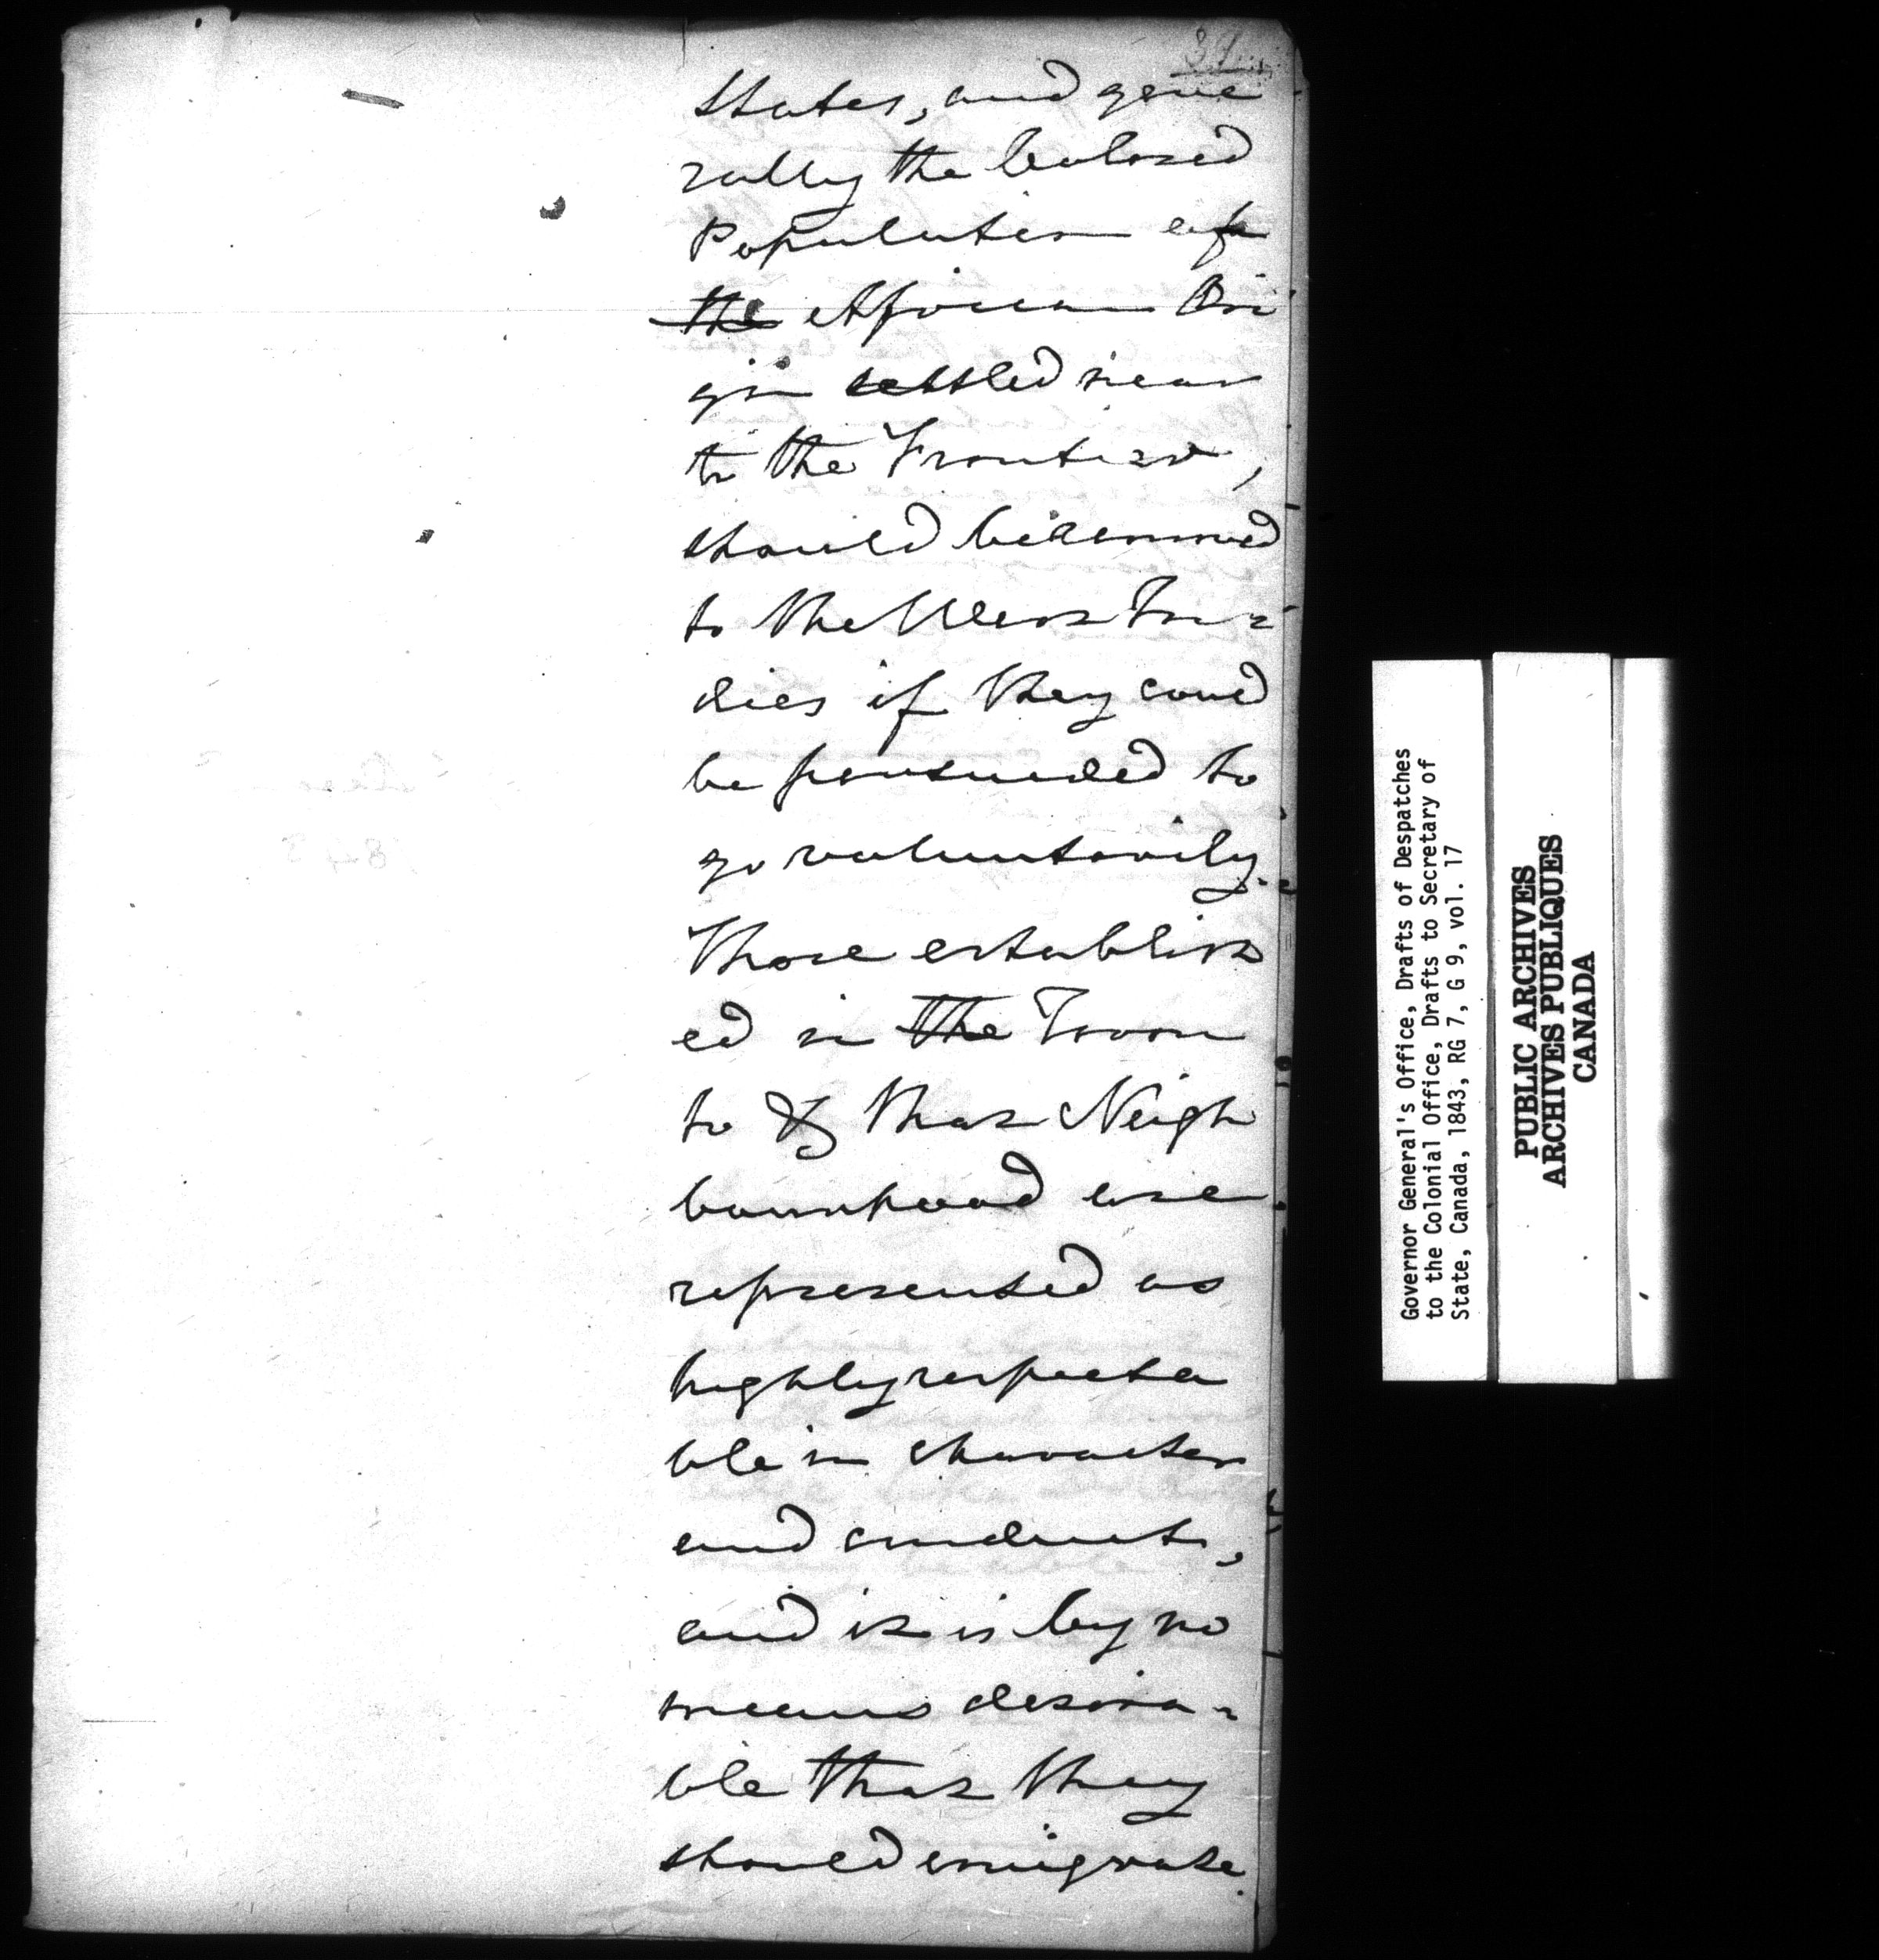 39
States, and gene
rally the Colored
Population of
the African Ori
gin settled near
to the Frontier,
should be removed
to the West In-
dies if they could
be persuaded to
go voluntarily.
Those establish
ed in the Toron
to & that Neigh
bourhood are
represented as
highly respecta
ble in character
and conduct,
and it is by no
means desira-
ble that they
should emigrate.
Governor General's Office, Drafts of Despatches
to the Colonial Office, Drafts to Secretary of
State, Canada, 1843, RG 7, G 9, vol. 17
PUBLIC ARCHIVES
ARCHIVES PUBLIQUES
CANADA